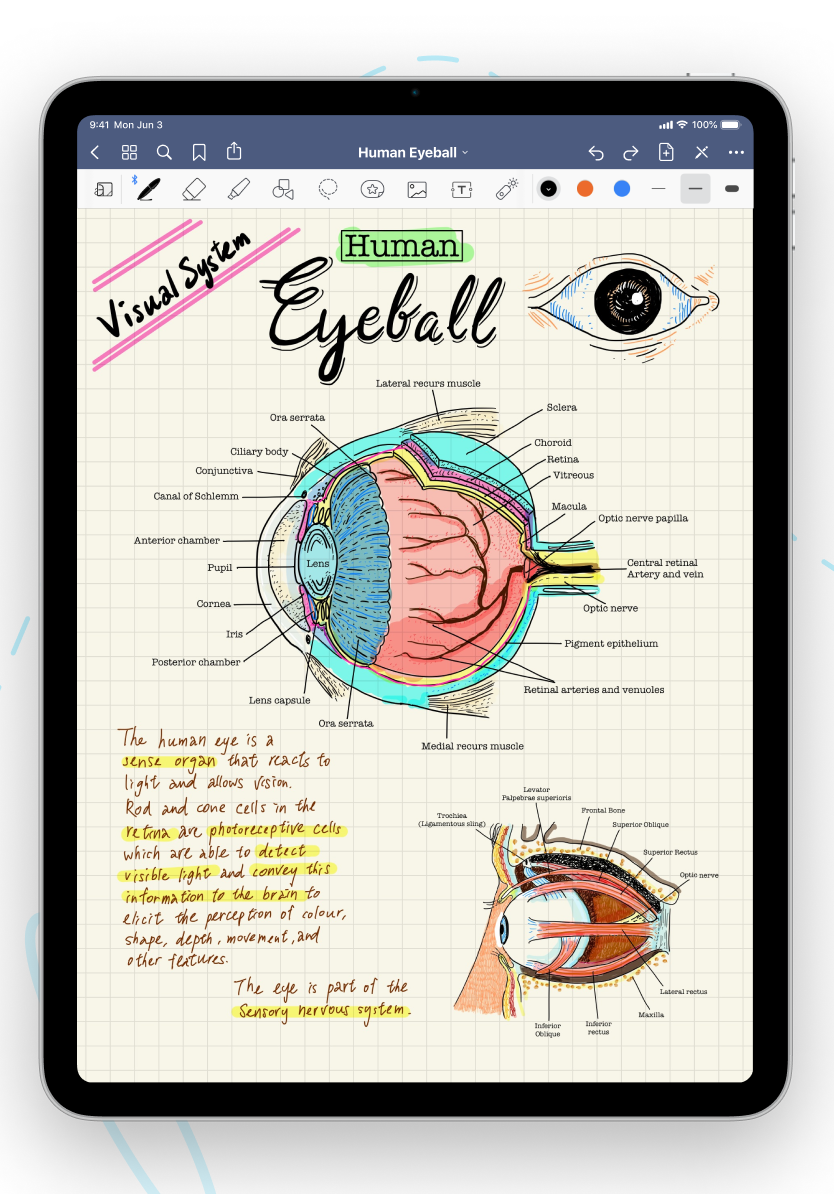 9:41 Mon Jun 3
100%
Human Eyeball
T
Visual System
Human
Eyeball
Lateral recurs muscle
Ora serrata
Sclera
Ciliary body
Choroid
Conjunctiva
Retina
Vitreous
Canal of Schlemm
Macula
Optic nerve papilla
Anterior chamber
Pupil
Lens
Central retinal
Artery and vein
Cornea
Optic nerve
Iris
Pigment epithelium
Posterior chamber
Retinal arteries and venuoles
Lens capsule
Ora serrata
Medial recurs muscle
The human eye is a
sense organ that reacts to
light and allows vision.
Rod and cone cells in the
retina are photoreceptive cells
which are able to detect
visible light and convey this
information to the brain to
elicit the perception of colour,
shape, depth, movement, and
other features.
The eye is part of the
Sensory nervous system.
Levator
Palpebras superioris
Trochlea
(Ligamentous sling)
Frontal Bone
Superior Oblique
Superior Rectus
Optic nerve
Lateral rectus
Maxilla
Inferior
Oblique
Inferior
rectus